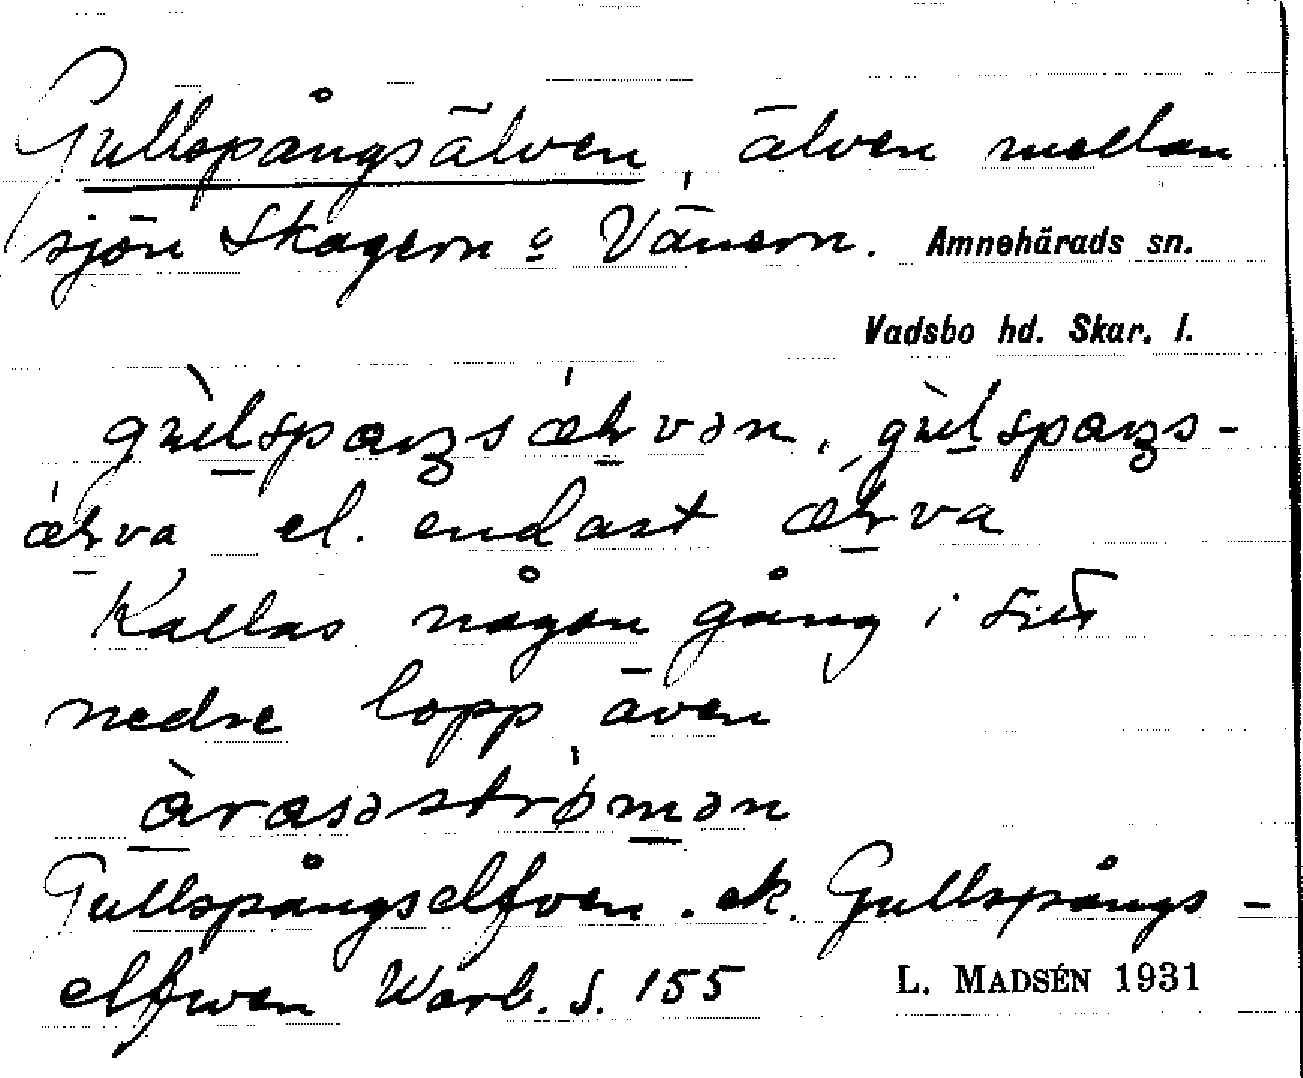 Gullspångsälven, älven mellan
sjön Skagern o Vänern. Amnehärads sn.
Vadsbo hd. Skar. l.
el. endast
Kallas någon gång i sitt
nedre lopp även
Gullspångselfven. ek. Gullspångs-
elfwen Warb. s. 155 L. MADSÉN 1931